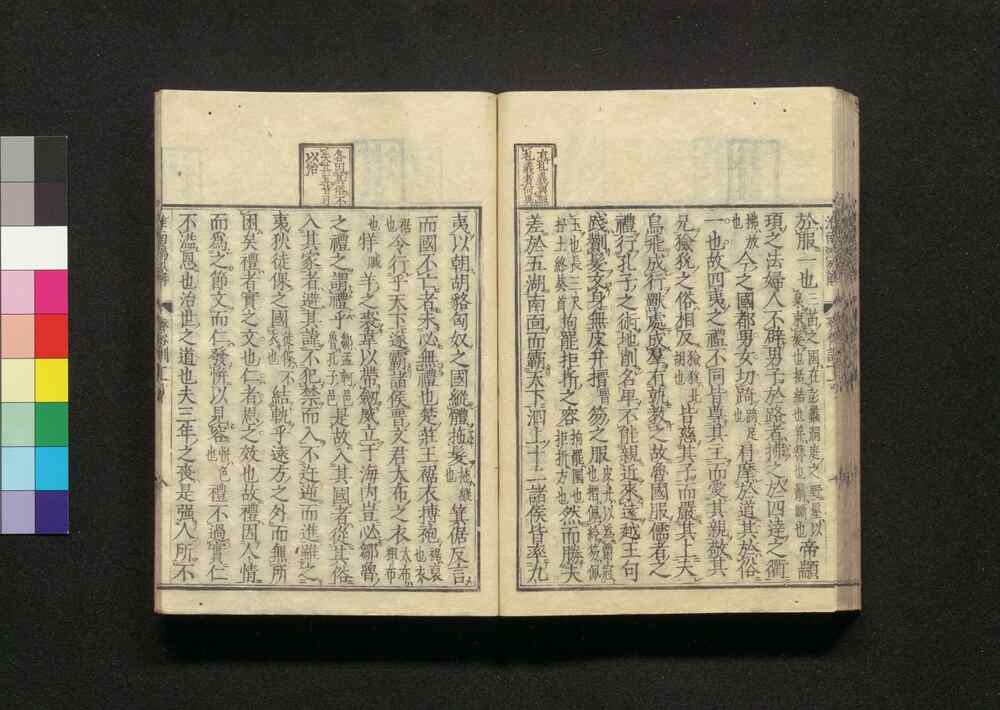 於服一也三苗之國在彭蠡洞庭之野髽以枲束髮也括結也帝顓
頊之法婦人不辟男子於路者拂之於四達之衢
拂放也今之國都男女切踦踦足也肩摩於道其於俗
一也故四夷之禮不同皆尊其主而愛其親敬其
兄獫狁之俗相反獫狁北胡也皆慈其子而嚴其上夫
鳥飛成行獸處成羣有孰教之故魯國服儒者之
禮行孔子之術地削名卑不能親近來遠越王句
踐劗髮文身無皮弁搢笏之服
拘罷拒折之容拘罷圜也拒折方也然而勝夫
差於五湖南面而霸天下泗上十二諸侯皆率九
夷以朝胡貉匈奴之國縱體拖髮拖縱也箕倨反言
而國不亡者未必無禮也楚莊王裾衣博袍裾裒也
令行乎天下遂霸諸侯晉文君大布之衣大布粗布也
牂羊之裘韋以帶劒威立于海內豈必鄒魯
之禮之謂禮乎鄒孟軻邑魯孔子邑是故入其國者從其俗
入其家者避其諱不犯禁而入不忤逆而進雖之
夷狄徒倮之國結軌乎遠方之外而無所
困矣禮者實之文也仁者恩之效也故禮因人情
而爲之節文而仁發恲以見容恲色也禮不過實仁
不溢恩也治世之道也夫三年之喪是强人所不